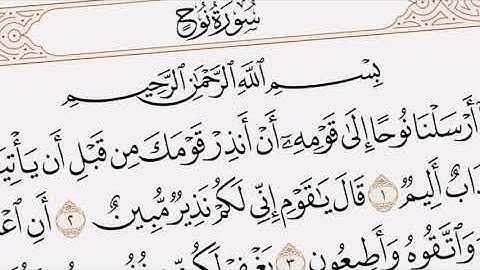 سُورَةُ نُوحٍ
بِسْمِ ٱللَّهِ ٱلرَّحْمَٰنِ ٱلرَّحِيمِ
أَرْسَلْنَا نُوحًا إِلَىٰ قَوْمِهِۦٓ أَنْ أَنذِرْ قَوْمَكَ مِن قَبْلِ أَن
أَلِيمٌ ١ قَالَ يَٰقَوْمِ إِنِّى لَكُمْ نَذِيرٌ مُّبِينٌ ٢ أَنِ
وَٱتَّقُوهُ وَأَطِيعُونِ ٣ يَغْفِرْ لَكُم